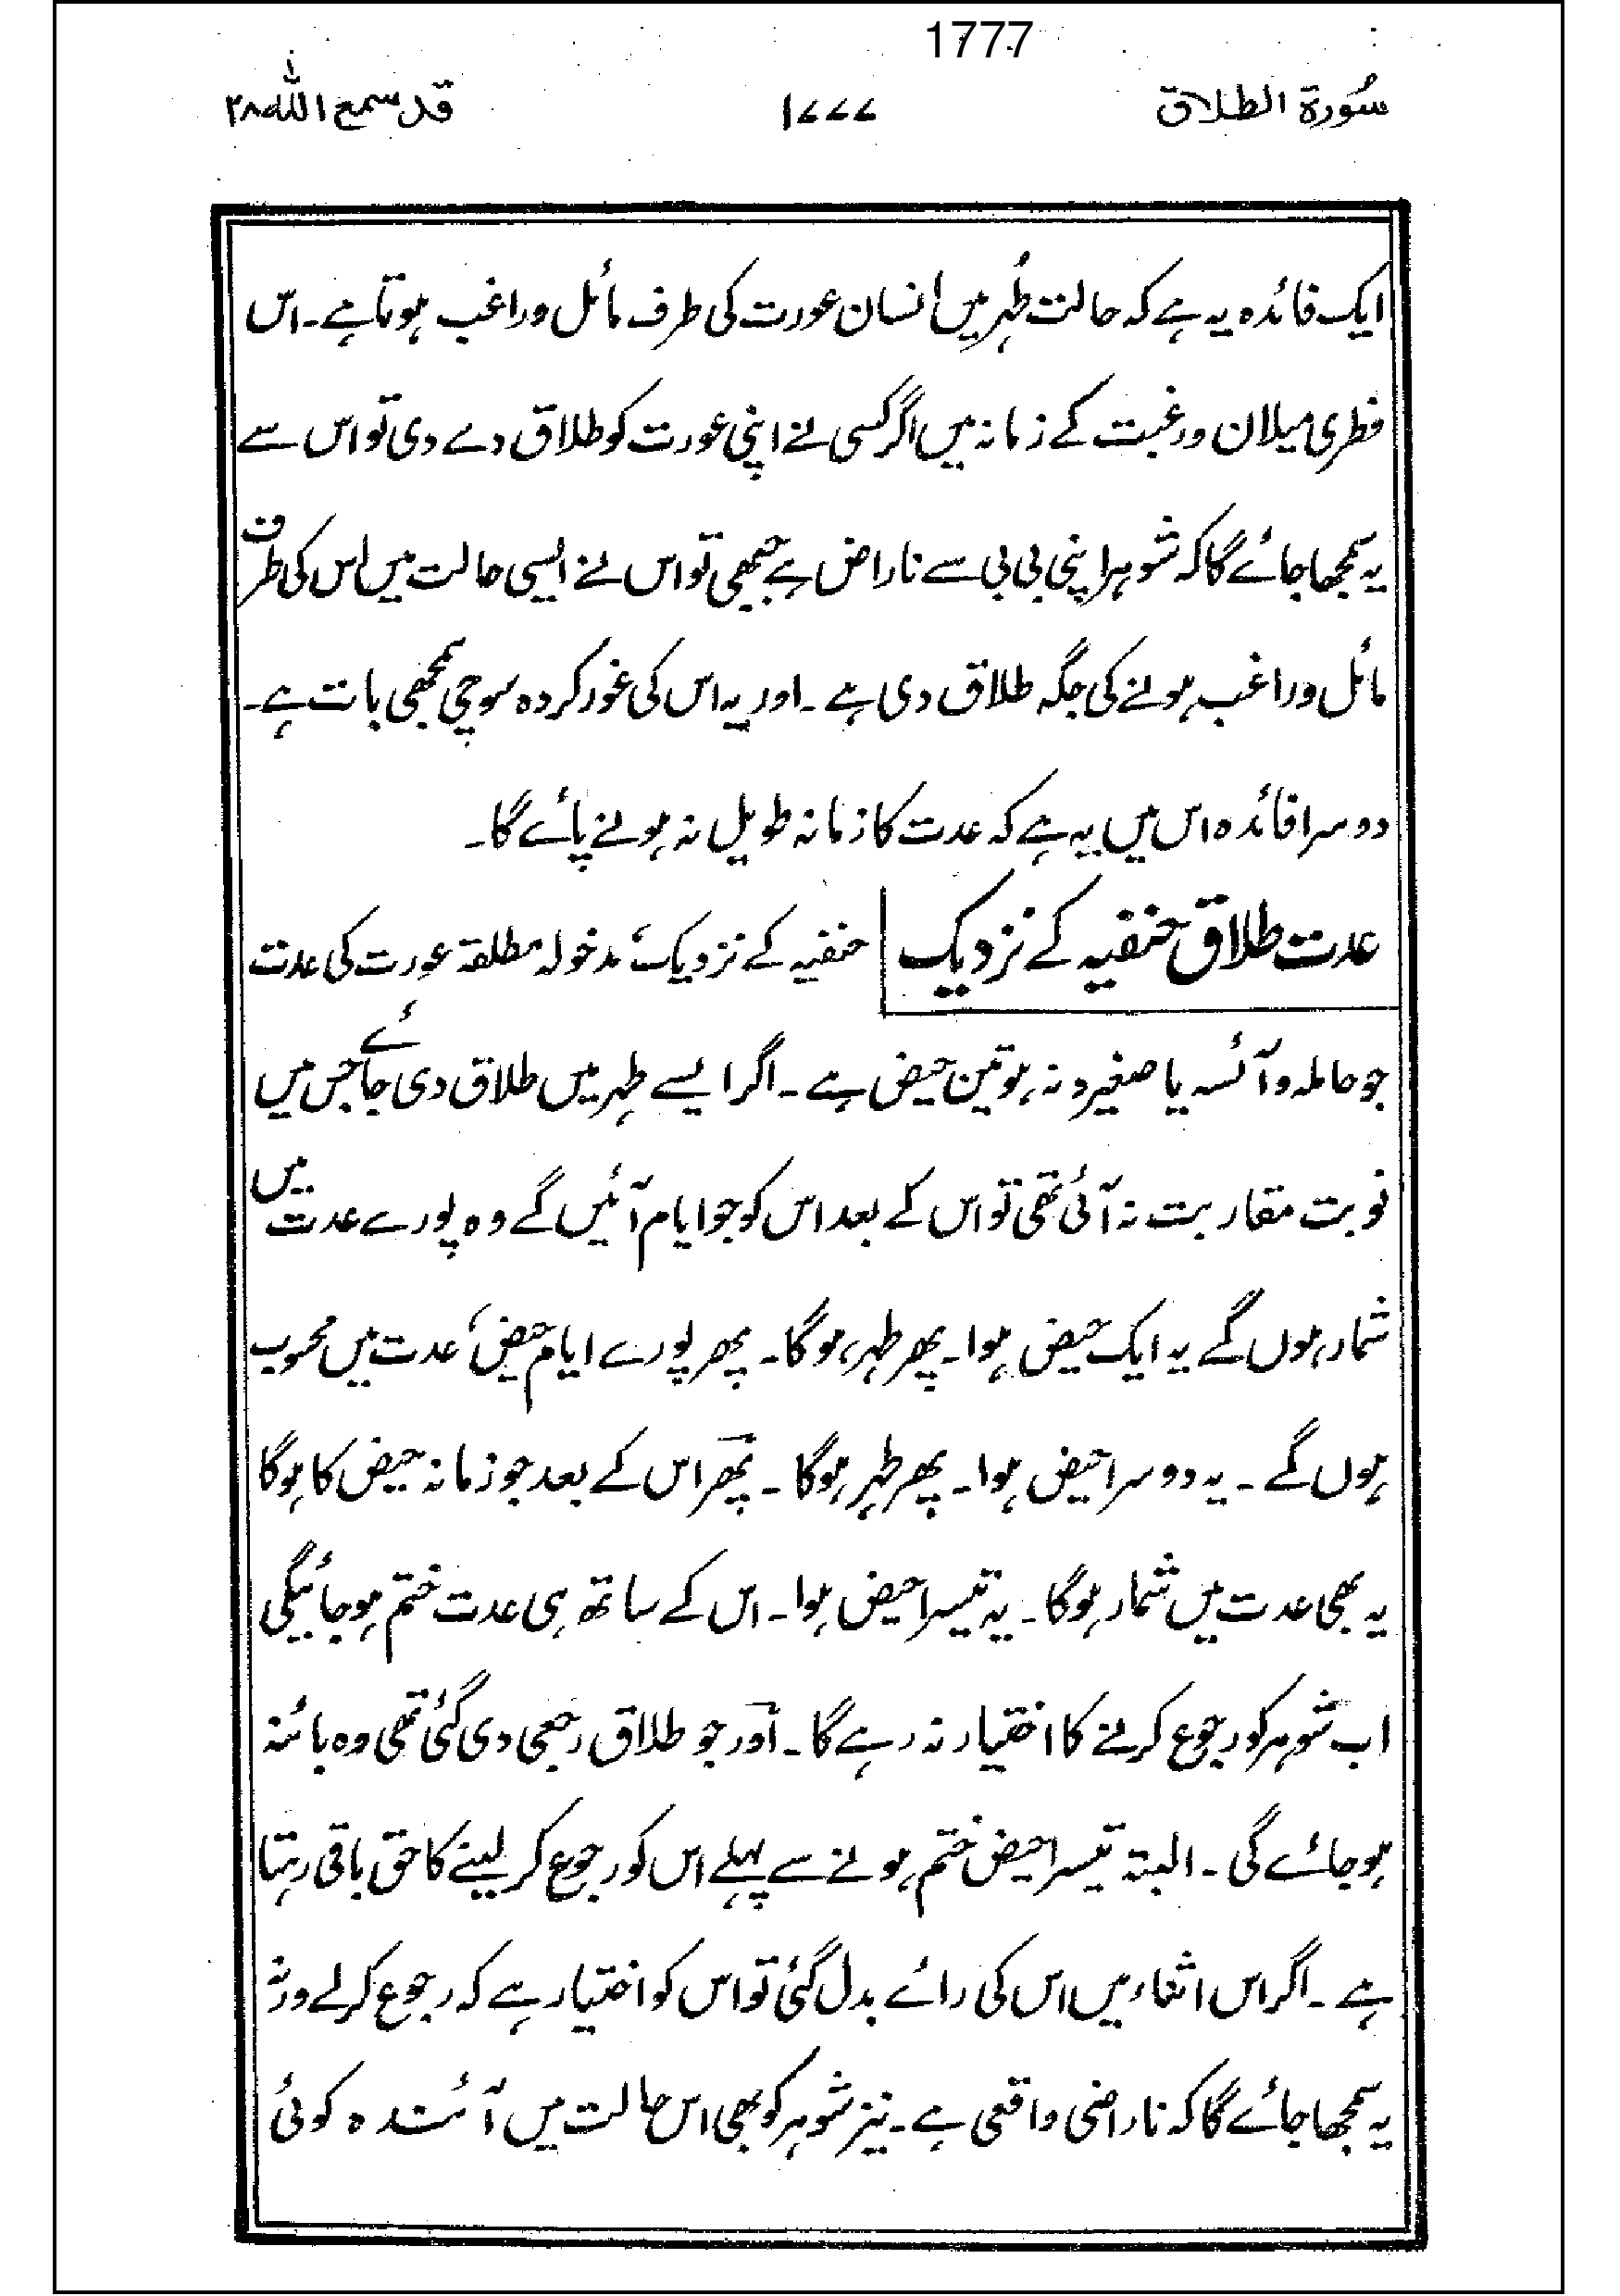 1777
سُورة الطلاق ۱۷۷۷ قد سمع الله ۲۸
ایک فائدہ یہ ہے کہ حالت طُہر میں انسان عورت کی طرف مائل وراغب ہوتا ہے۔ اس
فطری میلان ورغبت کے زمانہ میں اگر کسی نے اپنی عورت کو طلاق دے دی تو اس سے
یہ سمجھا جائے گا کہ شوہر اپنی بی بی سے ناراض ہے جبھی تو اس نے ایسی حالت میں اس کی طرف
مائل وراغب ہونے کی جگہ طلاق دی ہے ۔ اور یہ اس کی غور کردہ سوچی سمجھی بات ہے۔
دوسرا فائدہ اس میں یہ ہے کہ عدت کا زمانہ طویل نہ ہونے پائے گا۔
عدت طلاق حنفیہ کے نزدیک حنفیہ کے نزدیک، مدخولہ مطلقہ عورت کی عدت
جو حاملہ و آئسہ یا صغیرہ نہ ہو تین حیض ہے ۔ اگر ایسے طہر میں طلاق دی جائے جس میں
نوبت مقاربت نہ آئی تھی تو اس کے بعد اس کو جو ایام آئیں گے وہ پورے عدت میں
شمار ہوں گے یہ ایک حیض ہوا۔ پھر طہر ہوگا۔ پھر پورے ایام حیض، عدت میں محسوب
ہوں گے ۔ یہ دوسرا حیض ہوا۔ پھر طہر ہوگا ۔ پھر اس کے بعد جو زمانہ حیض کا ہوگا
یہ بھی عدت میں شمار ہوگا ۔ یہ تیسرا حیض ہوا ۔ اس کے ساتھ ہی عدت ختم ہوجائیگی
اب شوہر کو رجوع کرنے کا اختیار نہ رہے گا۔ اور جو طلاق رجعی دی گئی تھی وہ بائنہ
ہوجائے گی ۔ البتہ تیسرا حیض ختم ہونے سے پہلے اس کو رجوع کرلینے کا حق باقی رہتا
ہے ۔ اگر اس اثناء میں اس کی رائے بدل گئی تو اس کو اختیار ہے کہ رجوع کرلے ورنہ
یہ سمجھا جائے گا کہ ناراضی واقعی ہے ۔ نیز شوہر کو بھی اس حالت میں آئندہ کوئی